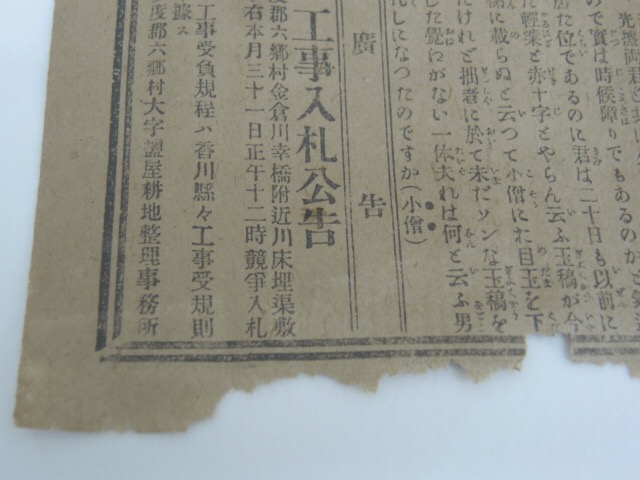 光擔両君と共に
ので實は時候障りでもあるのかと
居た位であるのに君は二十日も以前に
た輕業と赤十字とやらん云ふ玉稿が今
に載らぬと云つて小僧にた目玉を下
たけれど拙者に於て未だソンな玉稿を
した覺わがない一体夫れは何と云ふ男
しになつたのですか(小僧)
廣告
工事入札公告
度郡六郷村金倉川幸橋附近川床埋渠敷
右本月三十一日正午十二時競爭入札
工事受負規程ハ香川縣々工事受規則
據ス
度郡六郷村大字津屋耕地整理事務所